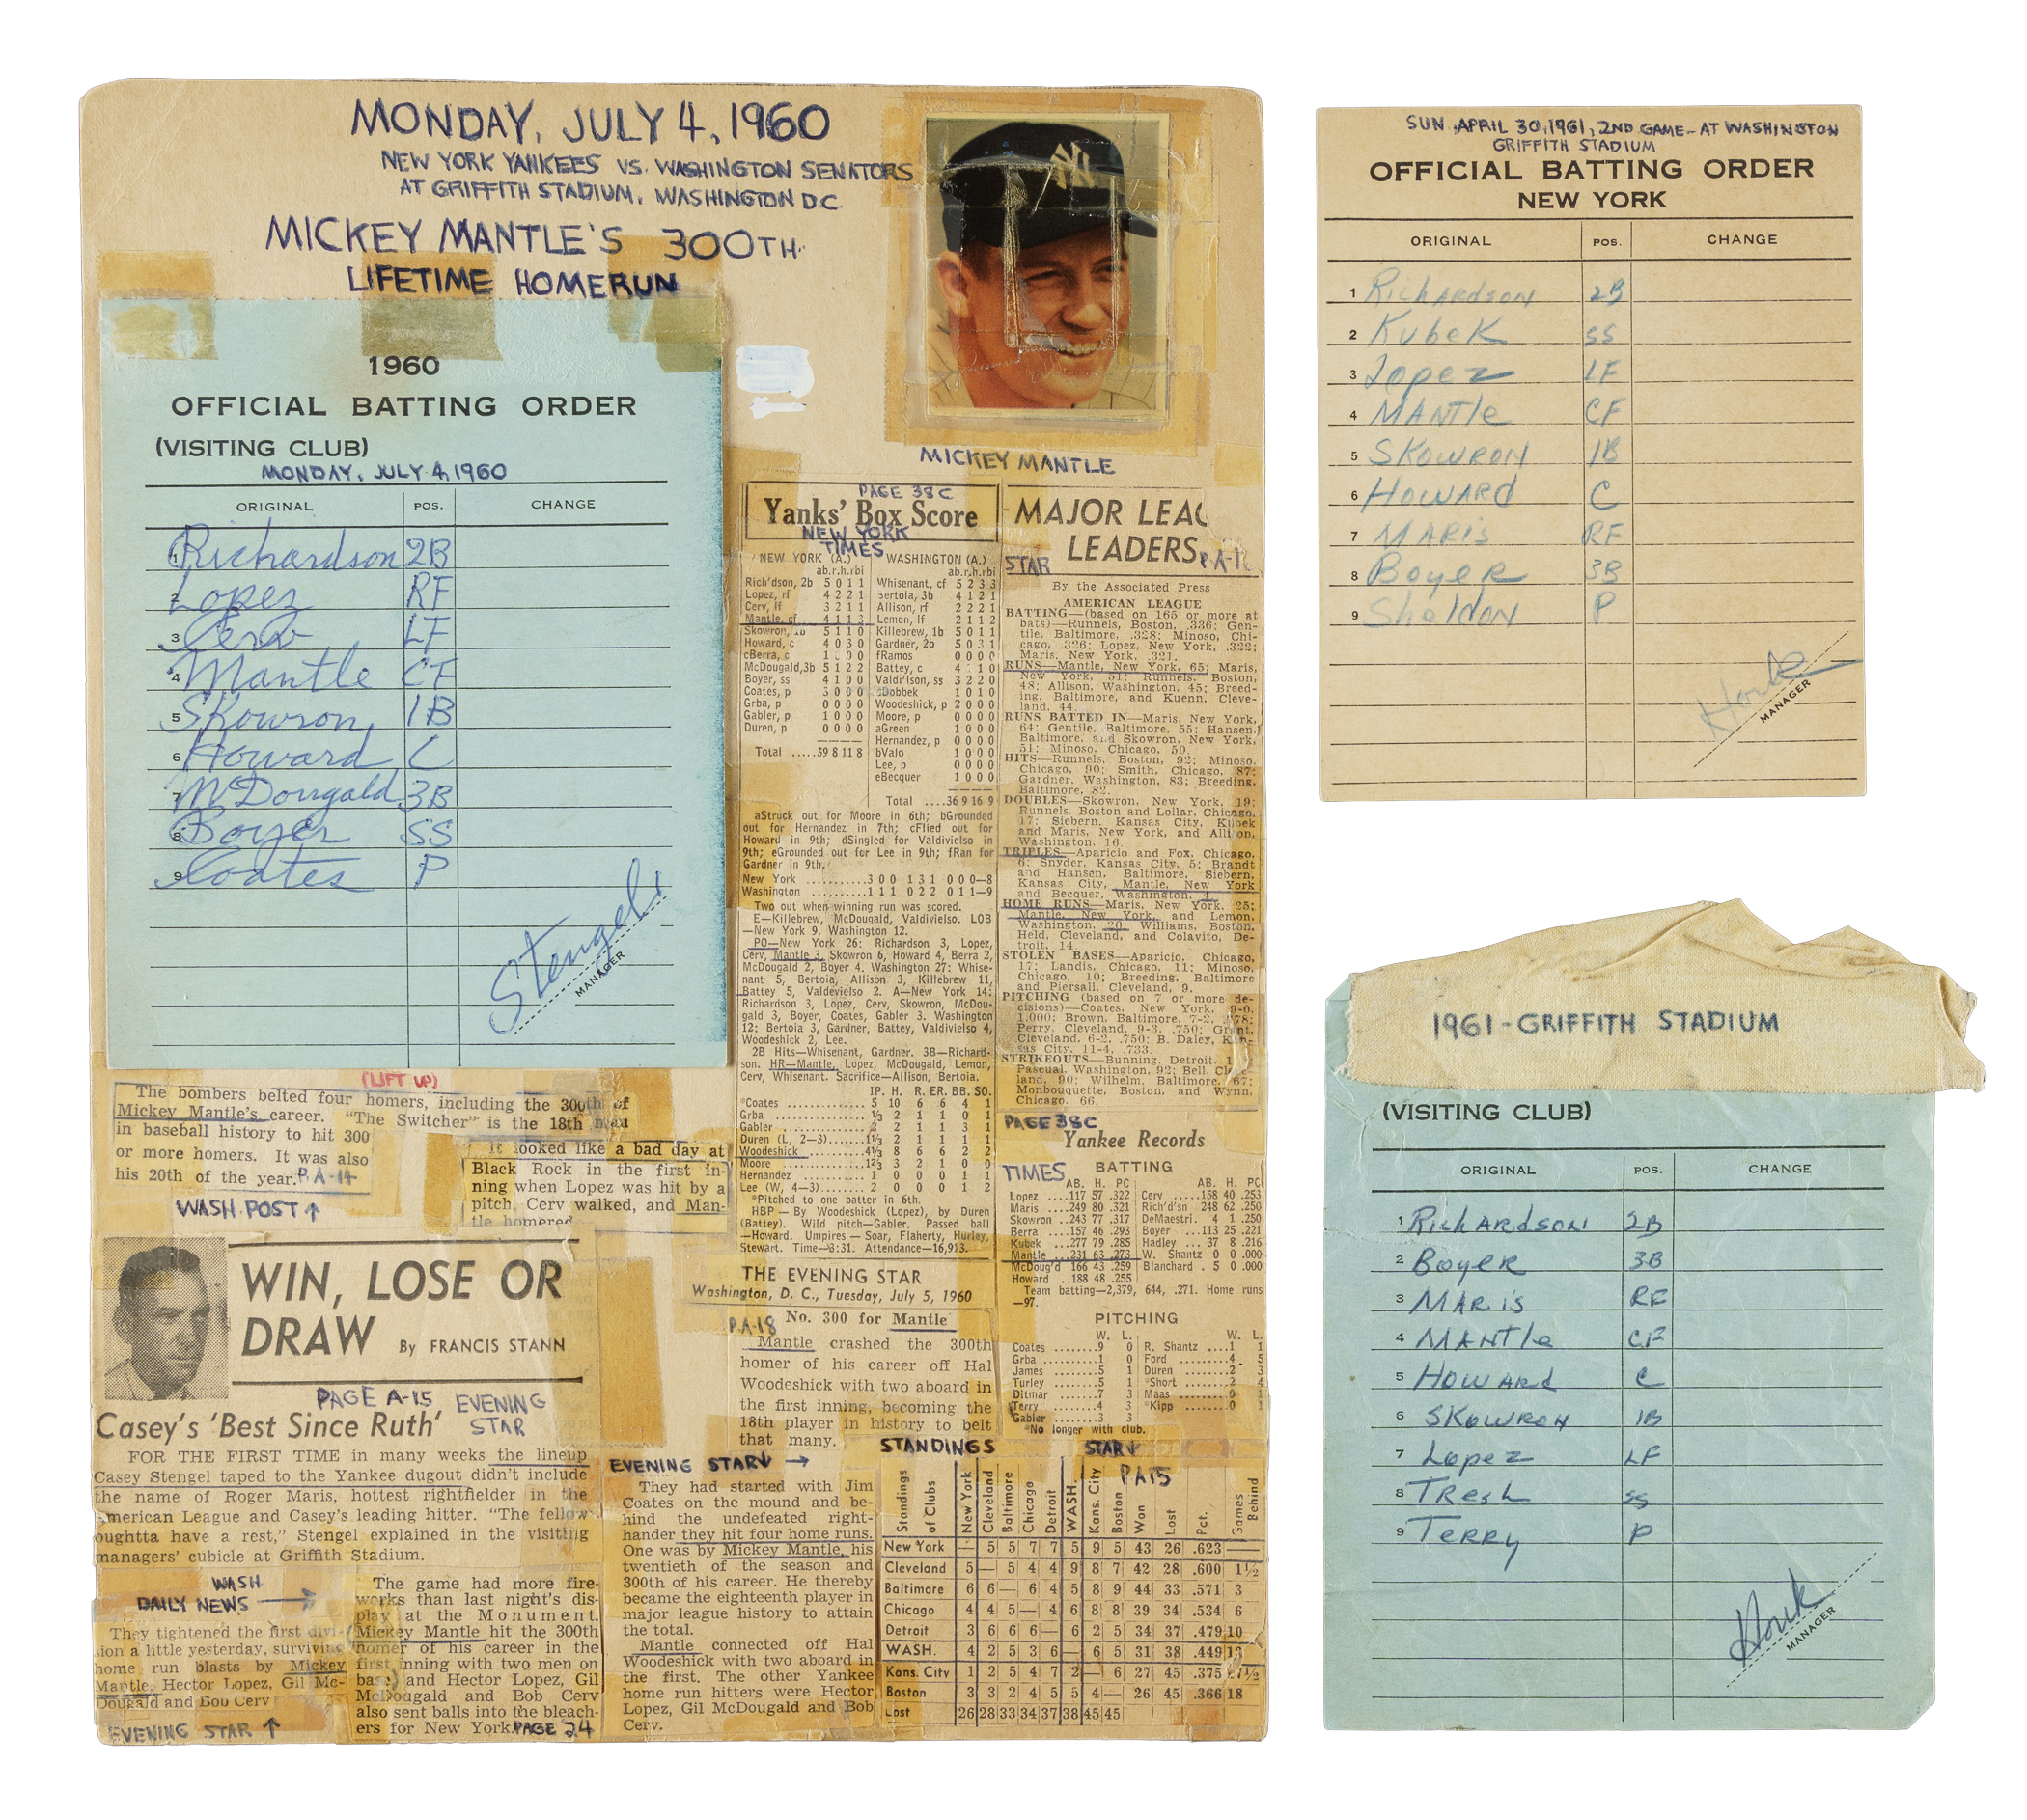 MONDAY, JULY 4, 1960
NEW YORK YANKEES VS. WASHINGTON SENATORS
AT GRIFFITH STADIUM, WASHINGTON DC
MICKEY MANTLE'S 300TH
LIFETIME HOMERUN
MICKEY MANTLE
1960
OFFICIAL BATTING ORDER
(VISITING CLUB)
MONDAY, JULY 4, 1960
ORIGINAL POS. CHANGE
1 Richardson 2B
2 Lopez RF
3 Cerv LF
4 Mantle CF
5 Skowron 1B
6 Howard C
7 McDougald 3B
8 Boyer SS
9 Coates P
Stengel
MANAGER
(LIFT UP)
The bombers belted four homers, including the 300th of
Mickey Mantle's career. "The Switcher" is the 18th man
in baseball history to hit 300
or more homers. It was also
his 20th of the year. P.A-14
WASH. POST ↑
It looked like a bad day at
Black Rock in the first in-
ning when Lopez was hit by a
pitch, Cerv walked, and Man-
tle homered
WIN, LOSE OR
DRAW By FRANCIS STANN
PAGE A-15 EVENING
STAR
Casey's 'Best Since Ruth'
FOR THE FIRST TIME in many weeks the lineup
Casey Stengel taped to the Yankee dugout didn't include
the name of Roger Maris, hottest rightfielder in the
American League and Casey's leading hitter. "The fellow
oughtta have a rest," Stengel explained in the visiting
managers' cubicle at Griffith Stadium.
WASH
DAILY NEWS →
They tightened the first divi-
sion a little yesterday, surviving
home run blasts by Mickey
Mantle, Hector Lopez, Gil Mc-
Dougald and Bob Cerv
EVENING STAR ↑
The game had more fire-
works than last night's dis-
play at the Monument.
Mickey Mantle hit the 300th
homer of his career in the
first inning with two men on
base, and Hector Lopez, Gil
McDougald and Bob Cerv
also sent balls into the bleach-
ers for New York. PAGE 24
PAGE 38C
Yanks' Box Score
NEW YORK
TIMES
NEW YORK (A.)
ab.r.h.rbi
Rich'dson, 2b 5 0 1 1
Lopez, rf 4 2 2 1
Cerv, lf 3 2 1 1
Mantle, cf 4 1 1 3
Skowron, 1b 5 1 1 0
Howard, c 4 0 3 0
cBerra, c 1 0 0 0
McDougald, 3b 5 1 2 2
Boyer, ss 4 1 0 0
Coates, p 3 0 0 0
Grba, p 0 0 0 0
Gabler, p 1 0 0 0
Duren, p 0 0 0 0
Total .....39 8 11 8
WASHINGTON (A.)
ab.r.h.rbi
Whisenant, cf 5 2 3 3
Bertoia, 3b 4 1 2 1
Allison, rf 2 2 2 1
Lemon, lf 2 1 1 2
Killebrew, 1b 5 0 1 1
Gardner, 2b 5 0 3 1
fRamos 0 0 0 0
Battey, c 4 1 1 0
Valdi'lson, ss 3 2 2 0
dDobbek 1 0 1 0
Woodeshick, p 2 0 0 0
Moore, p 0 0 0 0
aGreen 1 0 0 0
Hernandez, p 0 0 0 0
bValo 1 0 0 0
Lee, p 0 0 0 0
eBecquer 1 0 0 0
Total ....36 9 16 9
aStruck out for Moore in 6th; bGrounded
out for Hernandez in 7th; cFlied out for
Howard in 9th; dSingled for Valdivielso in
9th; eGrounded out for Lee in 9th; fRan for
Gardner in 9th.
New York ..........3 0 0 1 3 1 0 0 0—8
Washington ..........1 1 1 0 2 2 0 1 1—9
Two out when winning run was scored.
E—Killebrew, McDougald, Valdivielso. LOB
—New York 9, Washington 12.
PO—New York 26: Richardson 3, Lopez,
Cerv, Mantle 3, Skowron 6, Howard 4, Berra 2,
McDougald 2, Boyer 4. Washington 27: Whise-
nant 5, Bertoia, Allison 3, Killebrew 11,
Battey 5, Valdevielso 2. A—New York 14:
Richardson 3, Lopez, Cerv, Skowron, McDou-
gald 3, Boyer, Coates, Gabler 3. Washington
12: Bertoia 3, Gardner, Battey, Valdivielso 4,
Woodeshick 2, Lee.
2B Hits—Whisenant, Gardner. 3B—Richard-
son. HR—Mantle, Lopez, McDougald, Lemon,
Cerv, Whisenant. Sacrifice—Allison, Bertoia.
IP. H. R. ER. BB. SO.
*Coates ............ 5 10 6 6 4 1
Grba ............ ⅓ 2 1 1 0 1
Gabler ............ 2 2 1 1 3 1
Duren (L, 2—3)....... 1⅓ 2 1 1 1 1
Woodeshick ........ 4⅓ 8 6 6 2 2
Moore ............ 1⅔ 3 2 1 0 0
Hernandez ........ 1 0 0 0 1 1
Lee (W, 4—3)........ 2 0 0 0 1 2
*Pitched to one batter in 6th.
HBP—By Woodeshick (Lopez), by Duren
(Battey). Wild pitch—Gabler. Passed ball
—Howard. Umpires—Soar, Flaherty, Hurley,
Stewart. Time—3:31. Attendance—16,913.
THE EVENING STAR
Washington, D. C., Tuesday, July 5, 1960
P.A-18 No. 300 for Mantle
Mantle crashed the 300th
homer of his career off Hal
Woodeshick with two aboard in
the first inning, becoming the
18th player in history to belt
that many.
EVENING STAR↓ →
They had started with Jim
Coates on the mound and be-
hind the undefeated right-
hander they hit four home runs.
One was by Mickey Mantle, his
twentieth of the season and
300th of his career. He thereby
became the eighteenth player in
major league history to attain
the total.
Mantle connected off Hal
Woodeshick with two aboard in
the first. The other Yankee
home run hitters were Hector
Lopez, Gil McDougald and Bob
Cerv.
MAJOR LEAG
LEADERS
STAR P.A-18
By the Associated Press
AMERICAN LEAGUE
BATTING—(based on 165 or more at
bats)—Runnels, Boston, .336; Gen-
tile, Baltimore, .328; Minoso, Chi-
cago, .326; Lopez, New York, .322;
Maris, New York, .321.
RUNS—Mantle, New York, 65; Maris,
New York, 51; Runnels, Boston,
48; Allison, Washington, 45; Breed-
ing, Baltimore, and Kuenn, Cleve-
land, 44.
RUNS BATTED IN—Maris, New York,
64; Gentile, Baltimore, 55; Hansen,
Baltimore, and Skowron, New York,
51; Minoso, Chicago, 50.
HITS—Runnels, Boston, 92; Minoso,
Chicago, 90; Smith, Chicago, 87;
Gardner, Washington, 83; Breeding,
Baltimore, 82.
DOUBLES—Skowron, New York, 19;
Runnels, Boston and Lollar, Chicago,
17; Siebern, Kansas City, Kubek
and Maris, New York, and Allison,
Washington, 16.
TRIPLES—Aparicio and Fox, Chicago,
6; Snyder, Kansas City, 5; Brandt
and Hansen, Baltimore, Siebern,
Kansas City, Mantle, New York
and Becquer, Washington, 4.
HOME RUNS—Maris, New York, 25;
Mantle, New York, and Lemon,
Washington, 20; Williams, Boston,
Held, Cleveland, and Colavito, De-
troit, 14.
STOLEN BASES—Aparicio, Chicago,
17; Landis, Chicago, 11; Minoso,
Chicago, 10; Breeding, Baltimore
and Piersall, Cleveland, 9.
PITCHING (based on 7 or more de-
cisions)—Coates, New York, 9-0,
1.000; Brown, Baltimore, 7-2, .778;
Perry, Cleveland, 9-3, .750; Grant,
Cleveland, 6-2, .750; B. Daley, Kan-
sas City, 11-4, .733.
STRIKEOUTS—Bunning, Detroit,
Pascual, Washington, 92; Bell, Cleve-
land, 90; Wilhelm, Baltimore, 67;
Monbouquette, Boston, and Wynn,
Chicago, 66.
PAGE 38C
Yankee Records
TIMES BATTING
AB. H. PC AB. H. PC
Lopez ....117 57 .322 Cerv .....158 40 .253
Maris ....249 80 .321 Rich'd'sn 248 62 .250
Skowron ..243 77 .317 DeMaestri. 4 1 .250
Berra ....157 46 .293 Boyer ....113 25 .221
Kubek ....277 79 .285 Hadley ... 37 8 .216
Mantle ...231 63 .273 W. Shantz 0 0 .000
McDoug'd 166 43 .259 Blanchard . 5 0 .000
Howard ..188 48 .255
Team batting—2,379, 644, .271. Home runs
—97.
PITCHING
W. L. W. L.
Coates ........9 0 R. Shantz ....1 1
Grba ........1 0 Ford ........4 5
James ........5 1 Duren ........2 3
Turley ........5 1 *Short ........2 4
Ditmar .......7 3 Maas ........0 1
Terry ........4 3 *Kipp ........0 1
Gabler ........3 3
*No longer with club.
STANDINGS STAR↓
PA15
Standings of Clubs New York Cleveland Baltimore Chicago Detroit WASH. Kans. City Boston Won Lost Pct. Games Behind
New York — 5 5 7 7 5 9 5 43 26 .623 —
Cleveland 5 — 5 4 4 9 8 7 42 28 .600 1½
Baltimore 6 6 — 6 4 5 8 9 44 33 .571 3
Chicago 4 4 5 — 4 6 8 8 39 34 .534 6
Detroit 3 6 6 6 — 6 2 5 34 37 .479 10
WASH. 4 2 5 3 6 — 6 5 31 38 .449 12
Kans. City 1 2 5 4 7 2 — 6 27 45 .375 17½
Boston 3 3 2 4 5 5 4 — 26 45 .366 18
Lost 26 28 33 34 37 38 45 45
SUN. APRIL 30, 1961, 2ND GAME – AT WASHINGTON
GRIFFITH STADIUM
OFFICIAL BATTING ORDER
NEW YORK
ORIGINAL POS. CHANGE
1 Richardson 2B
2 Kubek SS
3 Lopez LF
4 Mantle CF
5 Skowron 1B
6 Howard C
7 Maris RF
8 Boyer 3B
9 Sheldon P
Houk
MANAGER
1961 - GRIFFITH STADIUM
(VISITING CLUB)
ORIGINAL POS. CHANGE
1 Richardson 2B
2 Boyer 3B
3 Maris RF
4 Mantle CF
5 Howard C
6 Skowron 1B
7 Lopez LF
8 Tresh SS
9 Terry P
Houk
MANAGER